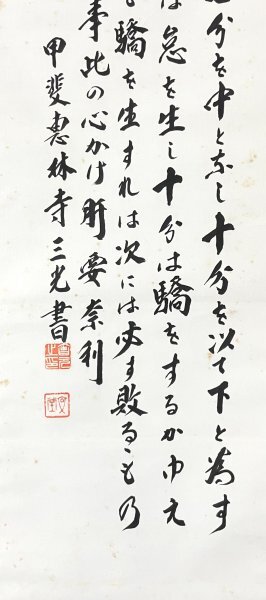 分を中となし十分を以て下と為す
は怠を生し十分は驕を生するか故え
も驕を生すれは次には必す敗るもの
事此の心かけ肝要奈利
甲斐恵林寺三光書